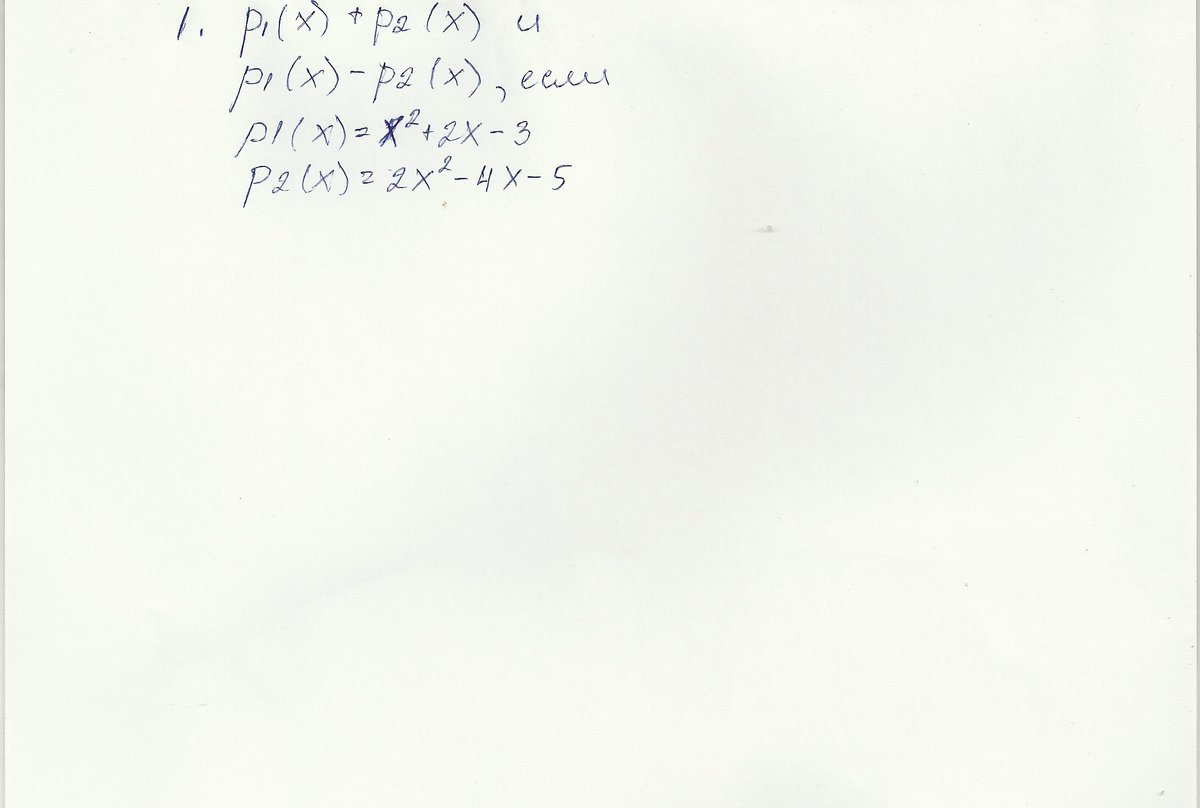 1. p1(x) + p2(x) и
p1(x) - p2(x), если
p1(x) = x² + 2x - 3
p2(x) = 2x² - 4x - 5